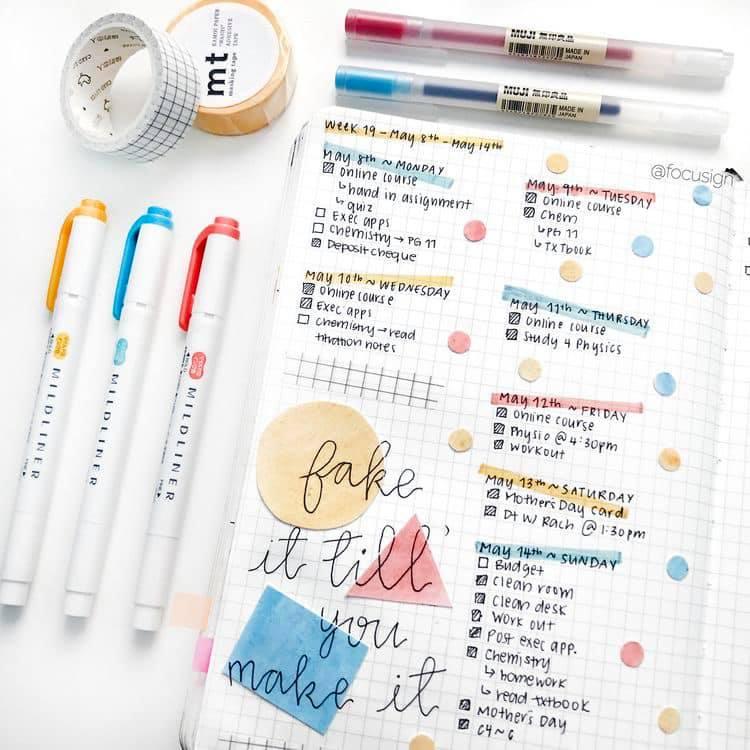 mt
masking tape
KAMOI PAPER
"WASHI"
ADHESIVE
TAPE
MUJI 無印良品
MADE IN
JAPAN
MUJI 無印良品
MADE IN
JAPAN
@focusign
MILDLINER
MILDLINER
MILDLINER
WEEK 19 - MAY 8th - MAY 14th
MAY 8th ~ MONDAY
Online course
↳ hand in assignment
↳ quiz
Exec apps
Chemistry → PG 11
Deposit cheque
MAY 10th ~ WEDNESDAY
Online course
Exec apps
Chemistry → read
titration notes
fake
it till'
you
make it
MAY 9th ~ TUESDAY
Online course
Chem
↳ PG 11
↳ TXTbook
MAY 11th ~ THURSDAY
Online course
Study 4 Physics
MAY 12th ~ FRIDAY
Online course
Physio @ 4:30pm
Workout
MAY 13th ~ SATURDAY
Mother's Day card
DT W/ Rach @ 1:30pm
MAY 14th ~ SUNDAY
Budget
Clean room
Clean desk
Work out
Post exec app.
Chemistry
↳ homework
↳ read txtbook
Mother's Day
C4~6